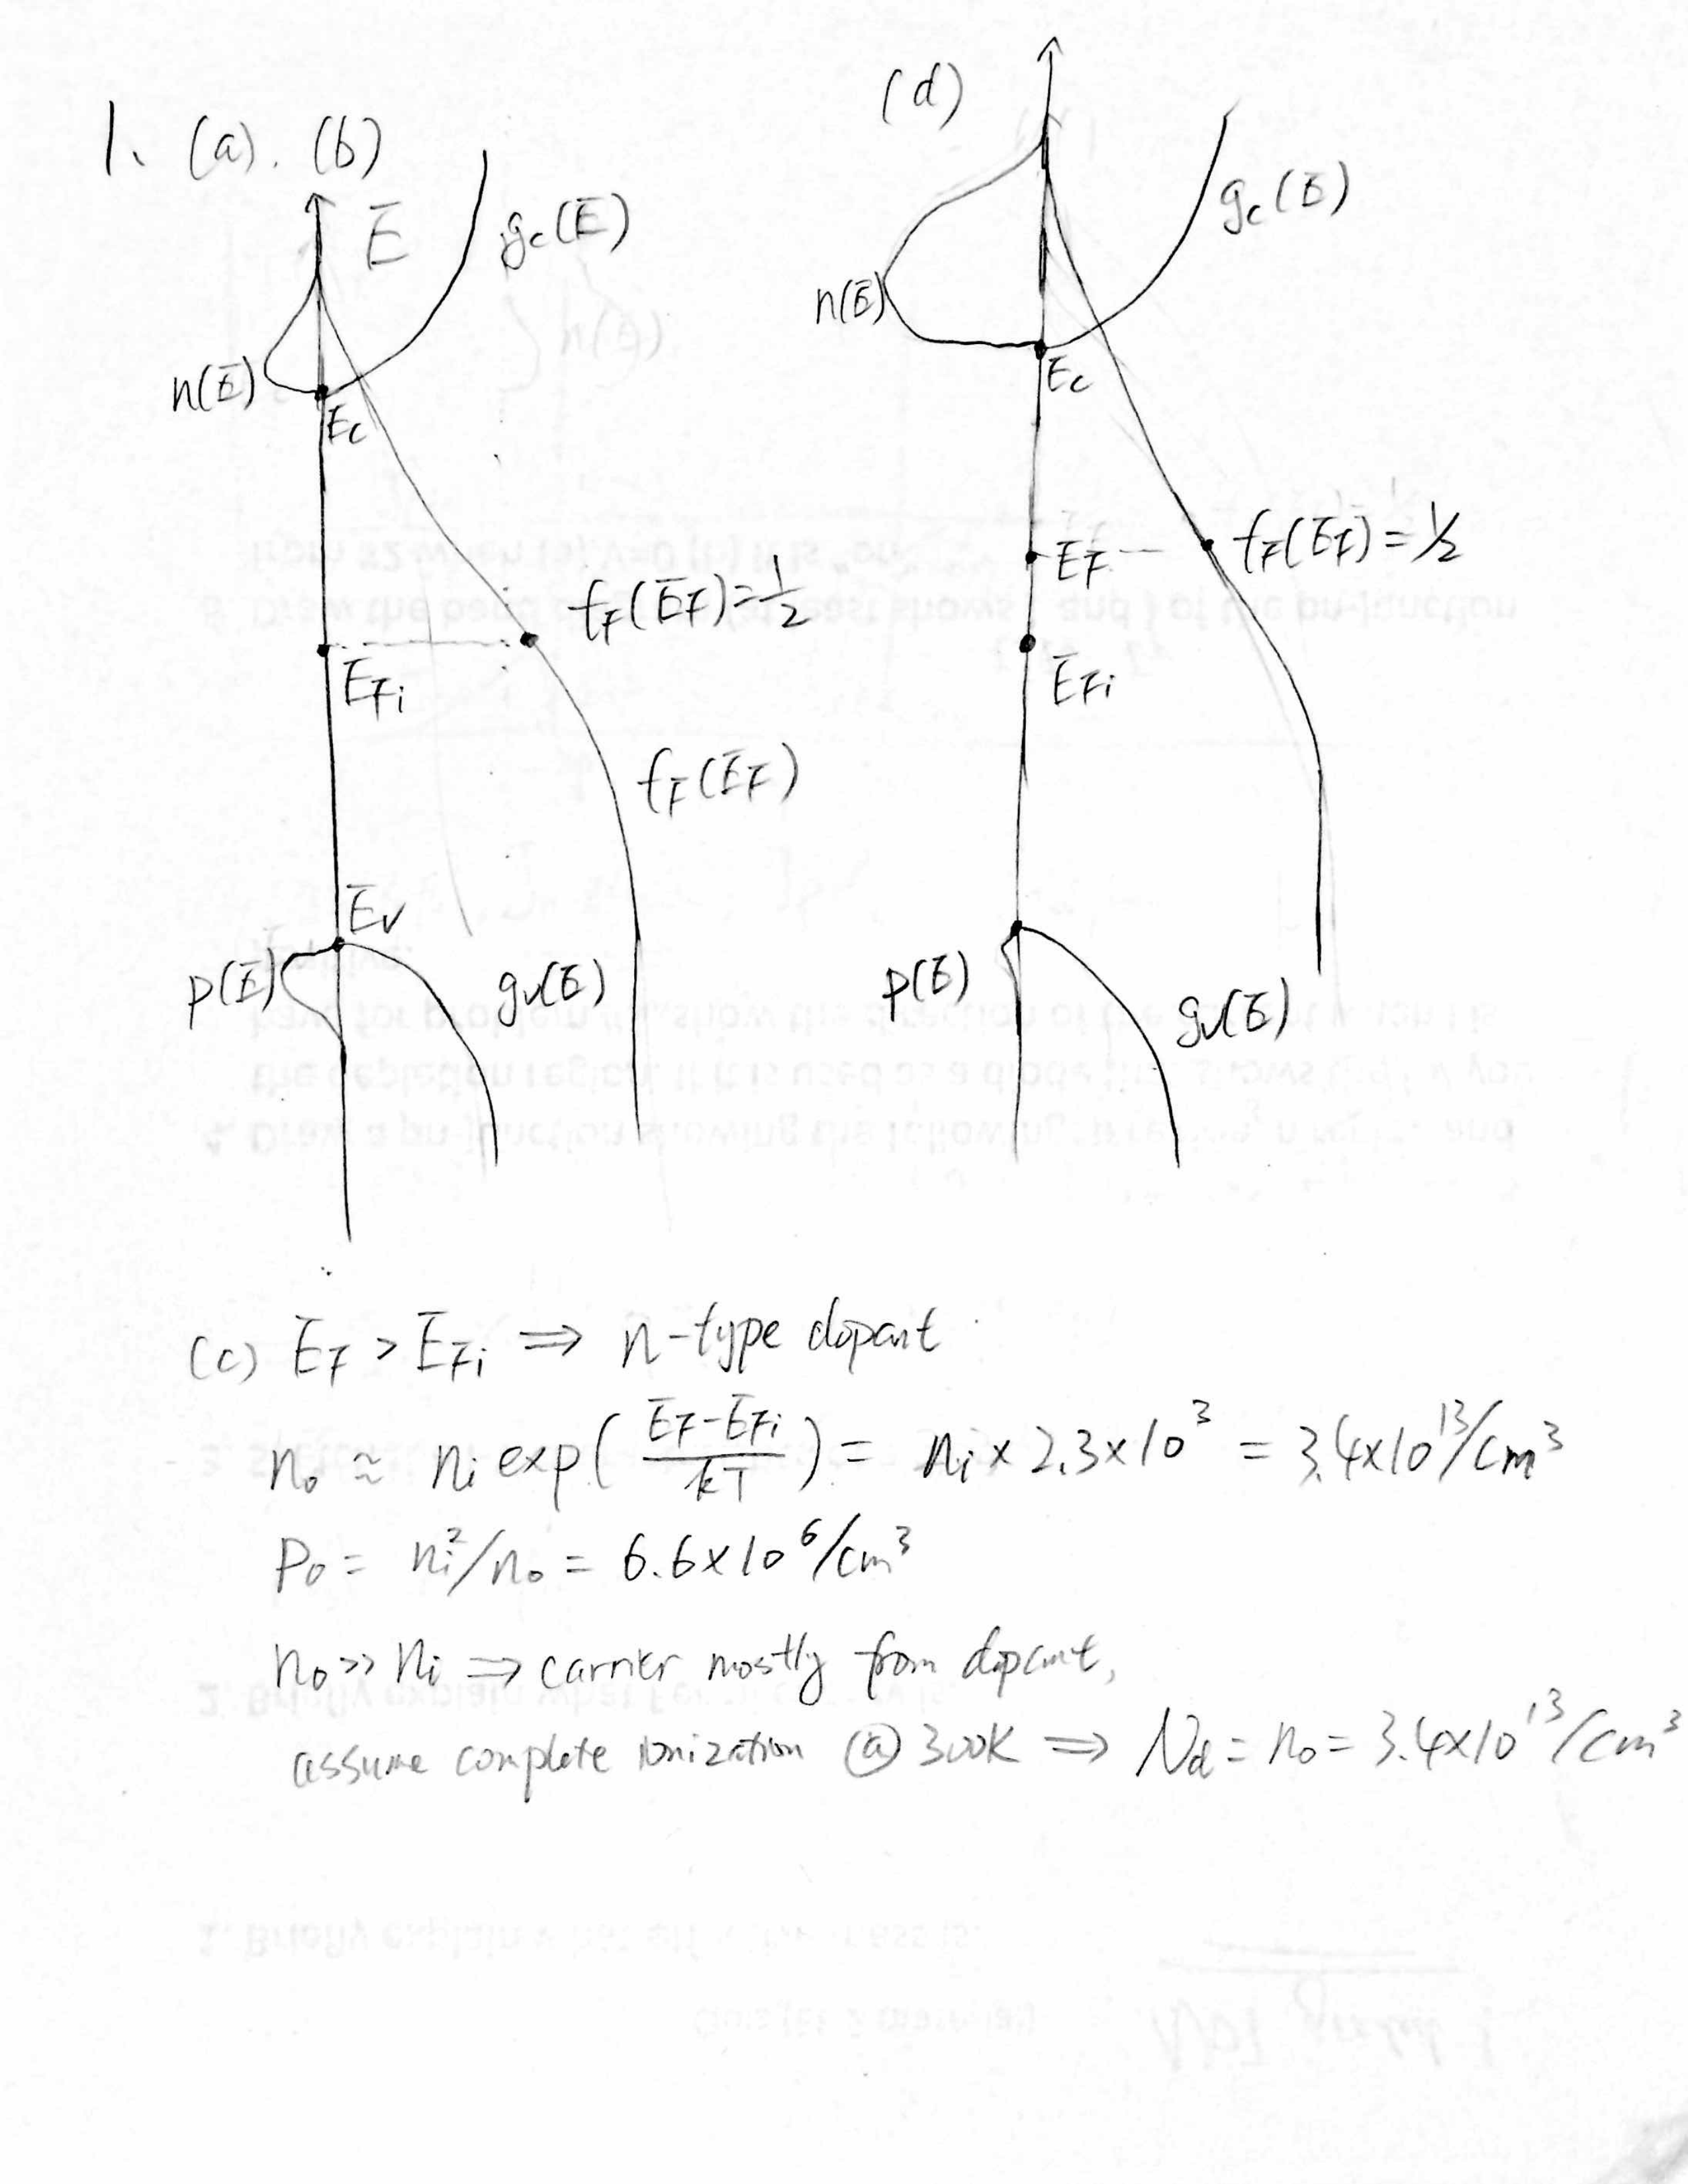 1. (a). (b)
E
gc(E)
n(E)
Ec
fF(EF)=1/2
EFi
fF(EF)
Ev
p(E)
gv(E)
(d)
gc(E)
n(E)
Ec
EF
fF(EF)=1/2
EFi
p(E)
gv(E)
(c) EF > EFi ⇒ n-type dopant
n₀ ≈ ni exp((EF-EFi)/kT) = ni × 2.3×10³ = 3.4×10¹³/cm³
P₀ = ni²/n₀ = 6.6×10⁶/cm³
n₀ >> ni ⇒ carrier mostly from dopant,
assume complete ionization @ 300K ⇒ Nd = n₀ = 3.4×10¹³/cm³